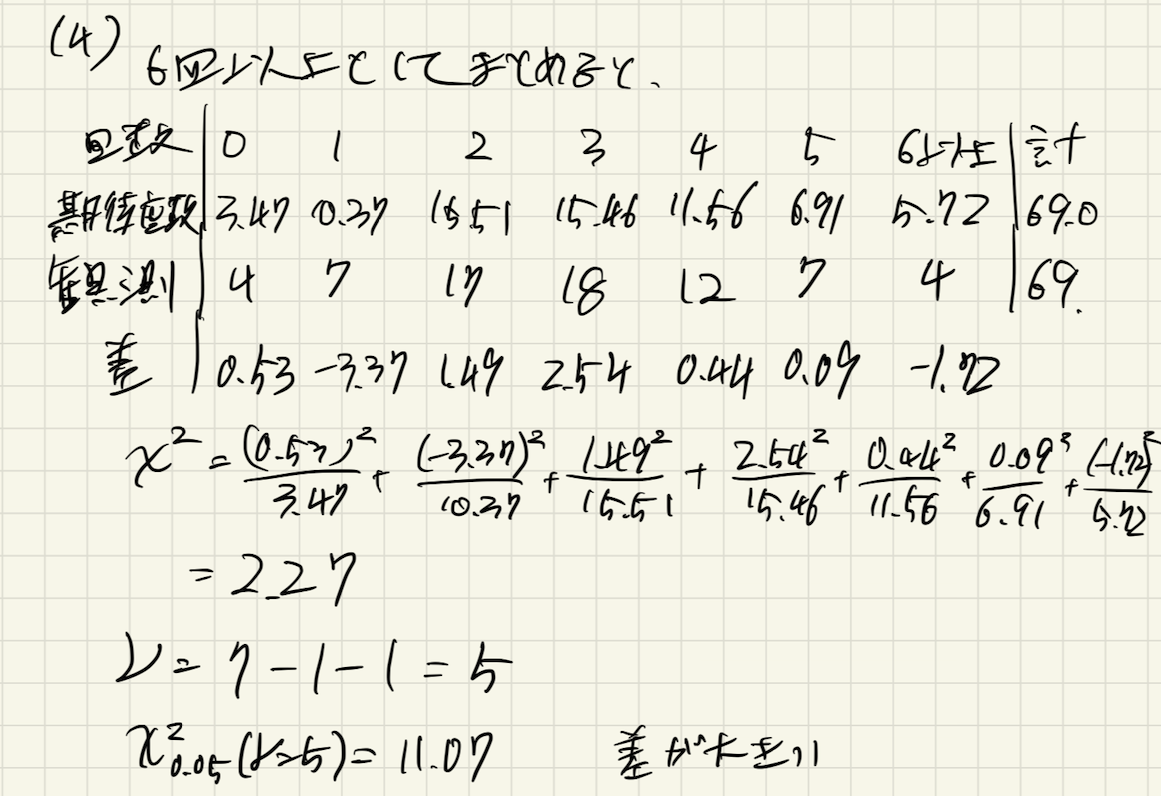 (4) 6回以上としてまとめると、
回数 0 1 2 3 4 5 6以上 計
期待度数 3.47 10.37 15.51 15.46 11.56 6.91 5.72 69.0
観測 4 7 17 18 12 7 4 69.
差 0.53 -3.37 1.49 2.54 0.44 0.09 -1.72
χ² = (0.53)²/3.47 + (-3.37)²/10.37 + 1.49²/15.51 + 2.54²/15.46 + 0.44²/11.56 + 0.09²/6.91 + (-1.72)²/5.72
= 2.27
ν = 7 - 1 - 1 = 5
χ²₀.₀₅(ν=5) = 11.07 差が大きい